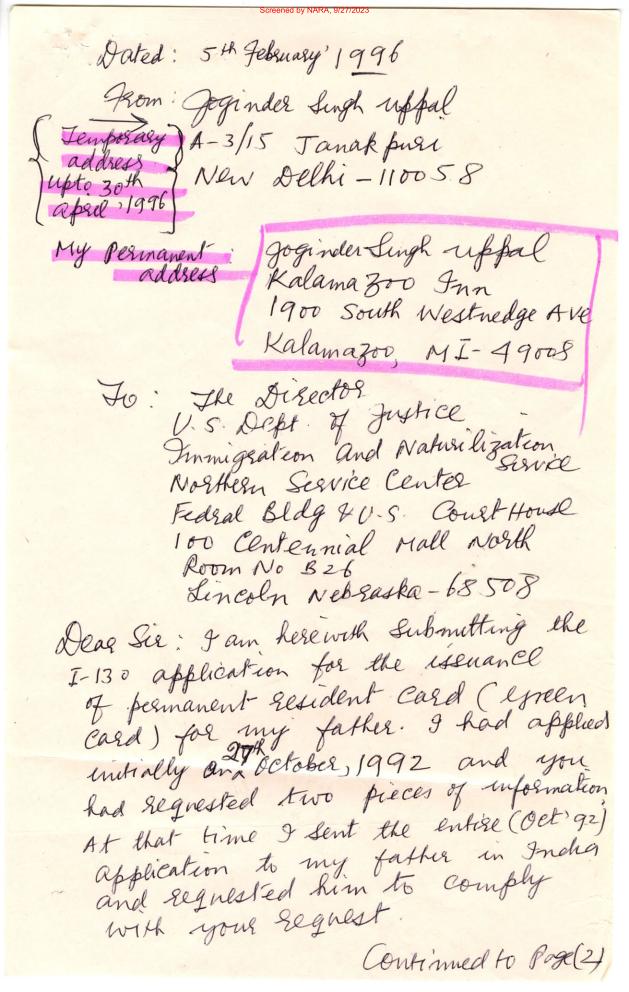 Screened by NARA, 9/27/2023
Dated: 5th February' 1996
From: Joginder Singh Uppal
Temporary address upto 30th April, 1996
A-3/15 Janakpuri
New Delhi-110058
My Permanent address:
Joginder Singh Uppal
Kalamazoo Inn
1900 South Westnedge Ave
Kalamazoo, MI-49008
To: The Director
U.S. Dept. of Justice
Immigration and Naturilization
Service
Northern Service Center
Fedral Bldg & U.S. Court House
100 Centennial Mall North
Room No B26
Lincoln Nebraska-68508
Dear Sir: I am herewith submitting the
I-130 application for the issuance
of permanent resident card (green
card) for my father. I had applied
initially on 27th October, 1992 and you
had requested two pieces of information
At that time I sent the entire (Oct' 92)
application to my father in India
and requested him to comply
with your request.
Continued to Page(2)